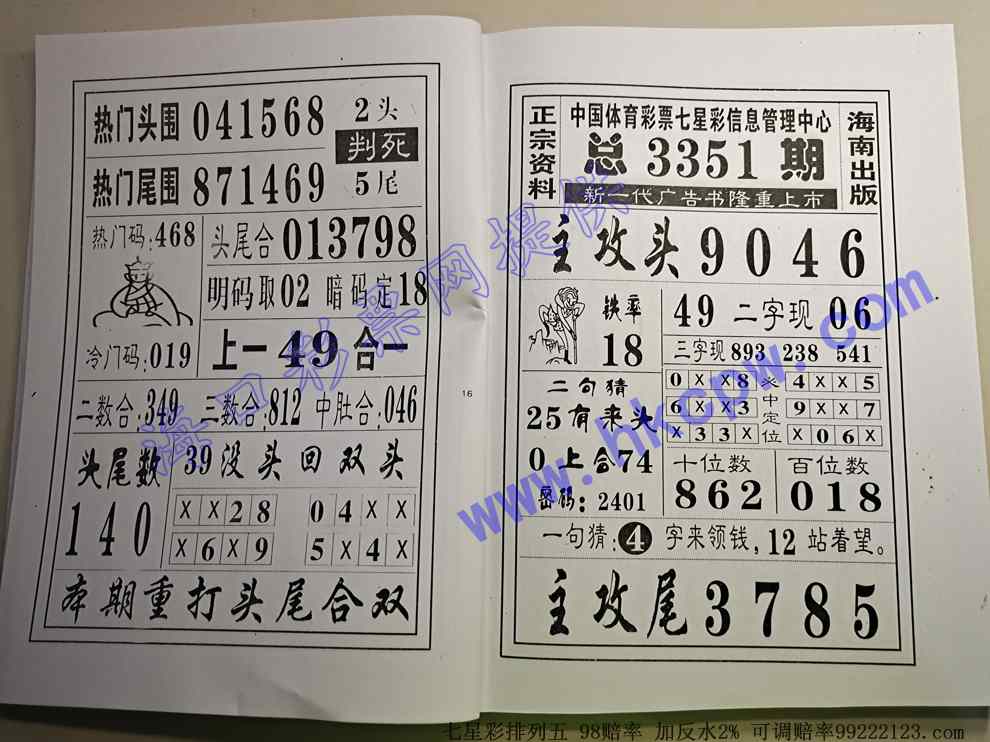 热门头围 041568
2头
判死
5尾
热门尾围 871469
热门码:468
头尾合 013798
明码取02 暗码定18
冷门码:019
上一49合一
二数合:349 三数合:812 中肚合:046
头尾数
140
39没头回双头
XX28 04XX
X6X9 5X4X
本期重打头尾合双
16
正宗资料
中国体育彩票七星彩信息管理中心
总 3351 期
新一代广告书隆重上市
海南出版
主攻头 9046
铁率
18
49 二字现 06
三字现 893 238 541
二句猜
25有来头
0上合74
密码:2401
0XX8 4XX5
6XX3 9XX7
X33X X06X
中定位
十位数 百位数
862 018
一句猜:4字来领钱,12站着望。
主攻尾 3785
海口彩票网提供
www.hkcpw.com
七星彩排列五 98赔率 加反水2% 可调赔率99222123.com